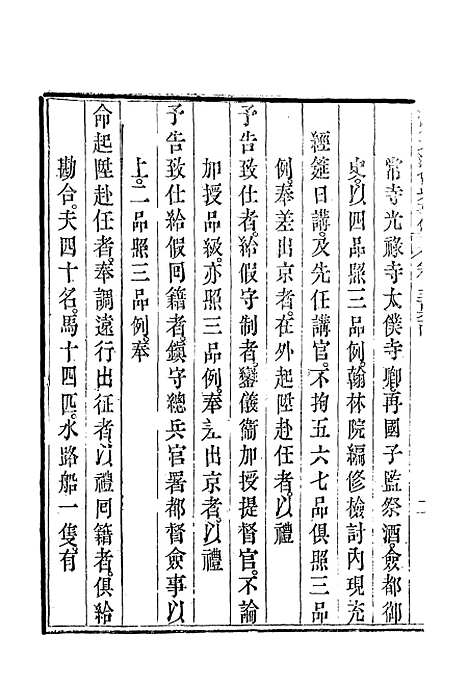 常寺光祿寺太僕寺卿。再國子監祭酒。僉都御
史。以四品照三品例。翰林院編修檢討內現充
經筵日講。及先任講官。不拘五六七品俱照三品
例。奉差出京者。在外起陞赴任者。以禮
予告致仕者。給假守制者。鑾儀衛加授提督官。不論
加授品級。亦照三品例。奉差出京者。以禮
予告致仕給假回籍者。鎮守總兵官署都督僉事以
上。二品照三品例。奉
命起陞赴任者。奉調遠行出征者。以禮回籍者。俱給
勘合。夫四十名。馬十四匹。水路船一隻。有